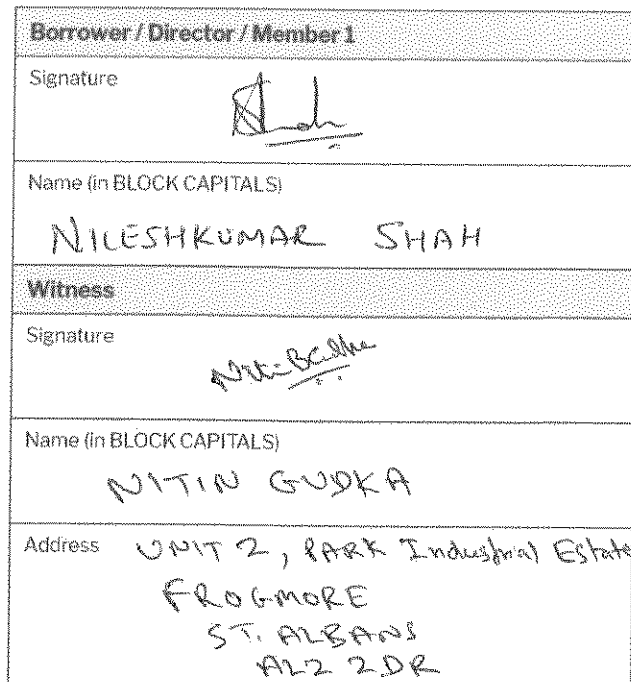 Borrower / Director / Member 1
Signature
Name (in BLOCK CAPITALS)
NILESHKUMAR SHAH
Witness
Signature
Name (in BLOCK CAPITALS)
NITIN GUDKA
Address UNIT 2, PARK Industrial Estate
FROGMORE
ST. ALBANS
AL2 2DR